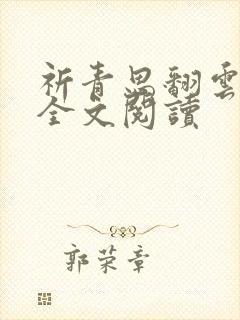 祈青思翻雲
全文閱讀
郭荣章